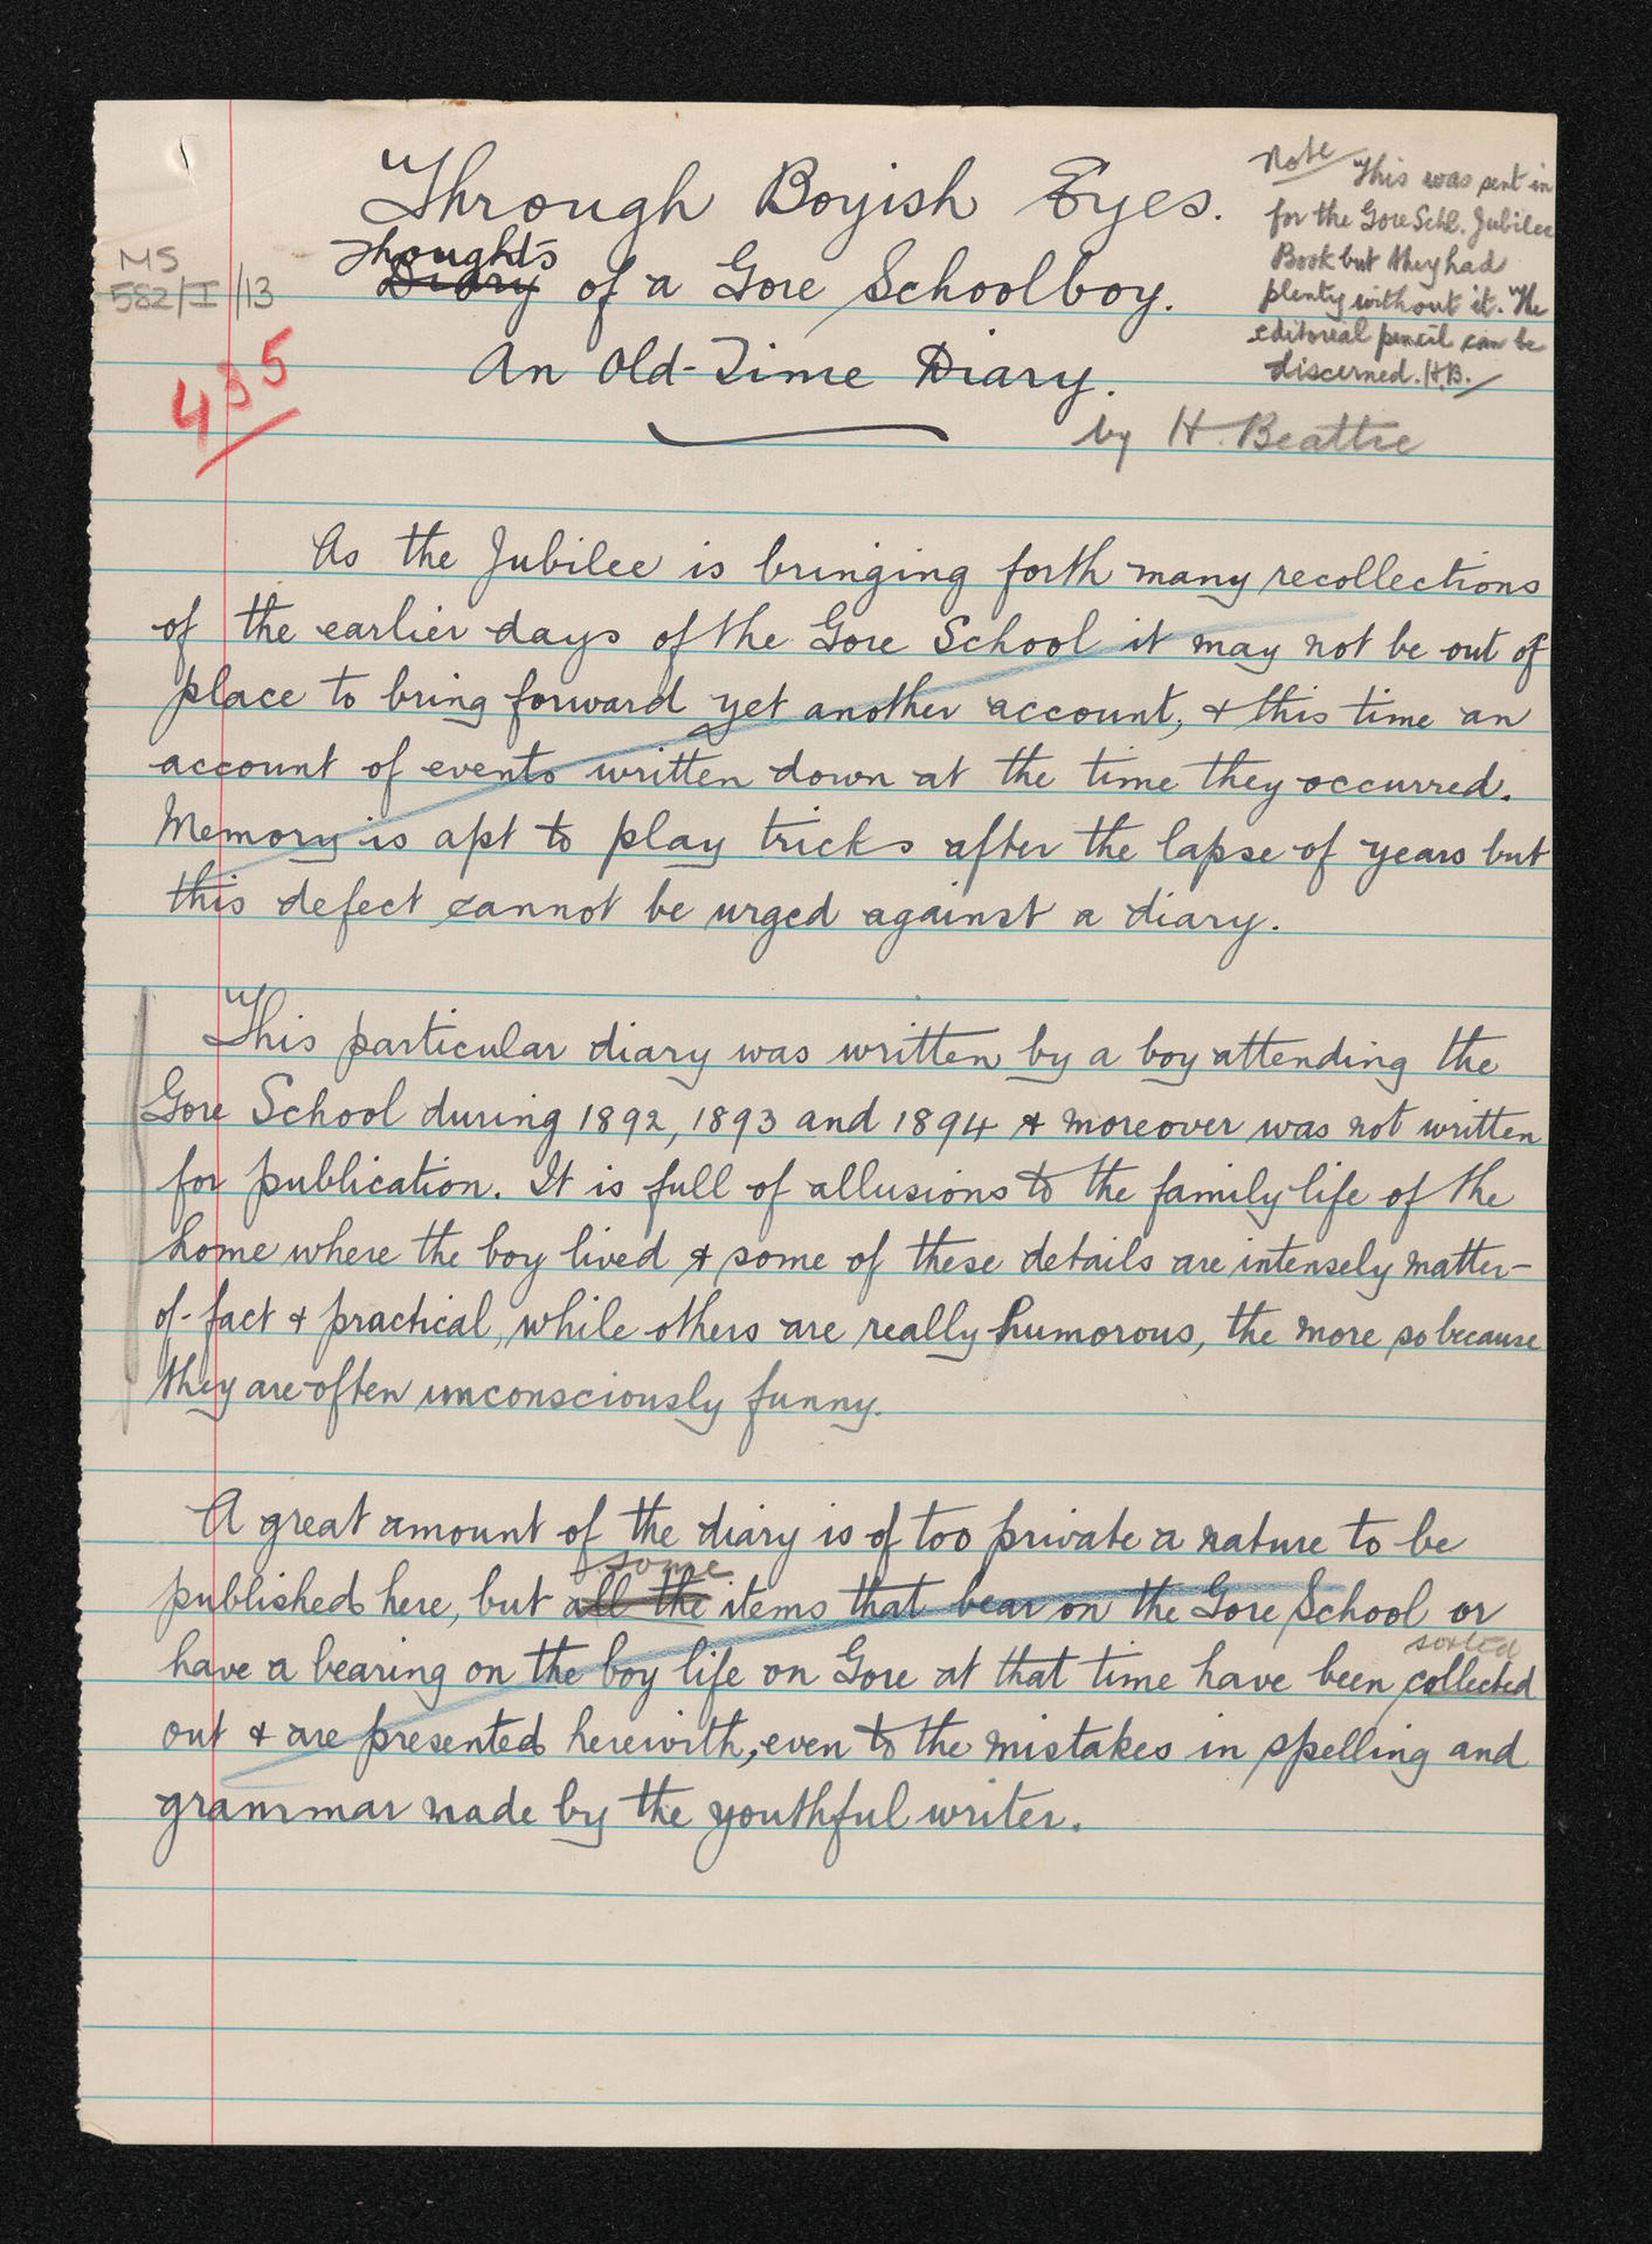 Through Boyish Eyes.
Thoughts
Diary of a Gore Schoolboy.
An Old-Time Diary.
by H. Beattie
Note This was sent in
for the Gore Schl. Jubilee
Book but they had
plenty without it. The
editorial pencil can be
discerned. H.B.
MS
582/I/13
435
As the Jubilee is bringing forth many recollections
of the earlier days of the Gore School it may not be out of
place to bring forward yet another account, & this time an
account of events written down at the time they occurred.
Memory is apt to play tricks after the lapse of years but
this defect cannot be urged against a diary.
This particular diary was written by a boy attending the
Gore School during 1892, 1893 and 1894 & moreover was not written
for publication. It is full of allusions to the family life of the
home where the boy lived & some of these details are intensely matter-
of-fact & practical, while others are really humorous, the more so because
they are often unconsciously funny.
A great amount of the diary is of too private a nature to be
some
published here, but all the items that bear on the Gore School or
sorted
have a bearing on the boy life on Gore at that time have been collected
out & are presented herewith, even to the mistakes in spelling and
grammar made by the youthful writer.